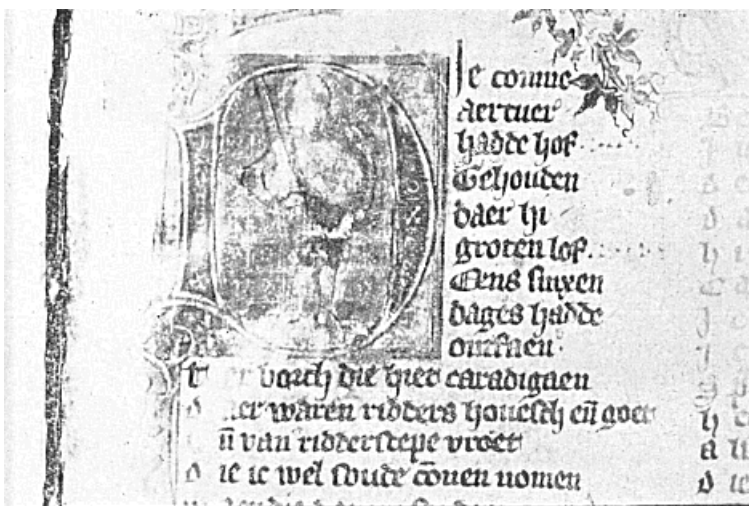 Ie coninc
Aertuer
hadde hof
Gehouden
daer hi
groten lof.
Eens sinxen
dages hadde
ontfaen.
er borch die hiet caradigaen
aer waren ridders houesch eñ goet
ñ van ridderscepe vroet
D ie ic wel soude cōnen nomen